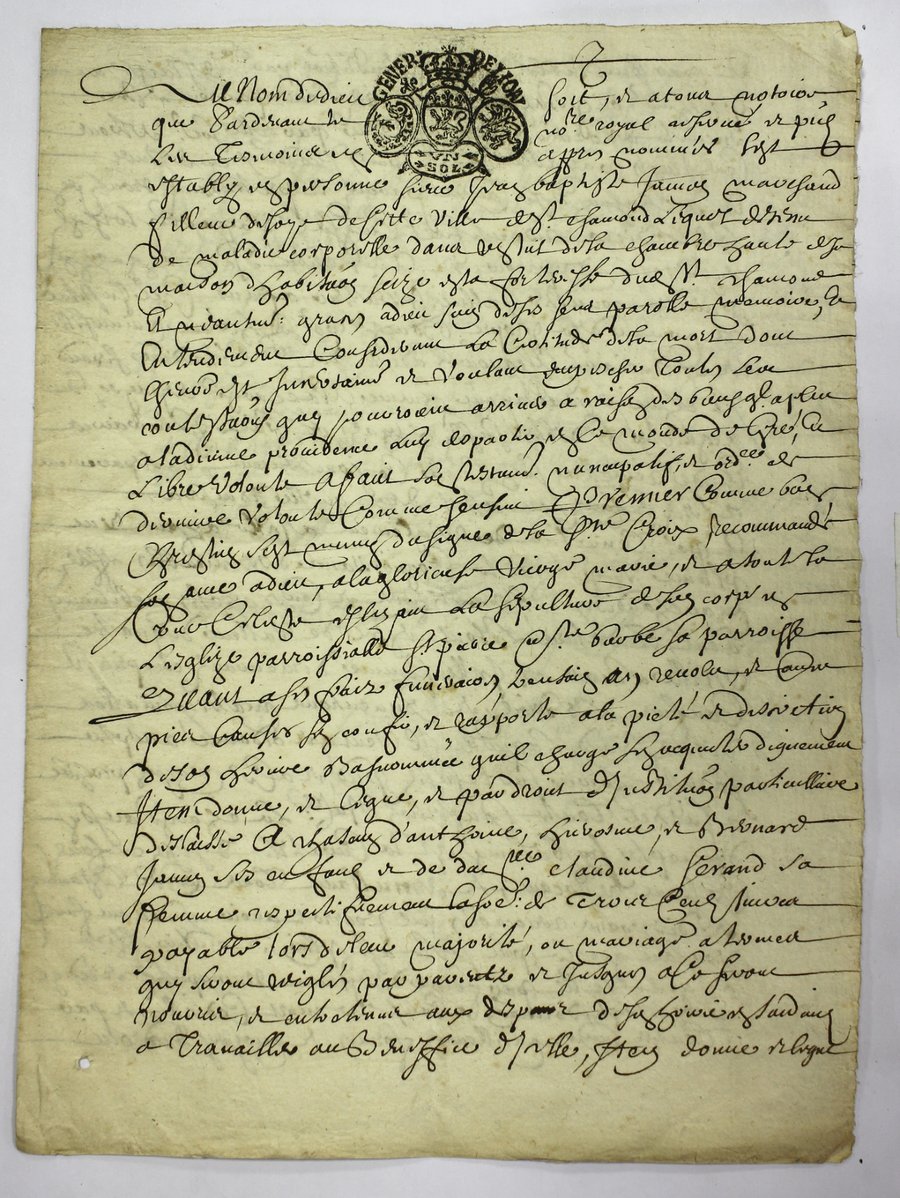 GENER DE LYON
VN
SOL
Au Nom de dieu soit, et a tous notoire
que Pardevant le no.re royal soubsigné et p
Les Tesmoings apprès nommés s'est
estably en personne sieur Jean baptiste Jamen marchand
filleur de soye de cette Ville de St. chamond Lequel detenu
de maladie corporelle dans un lit de la chambre haute de sa
maison d'habitaon size en la forteresse dud St. chamond
Et neantm: graces a dieu sain de ses sens parolle memoire, et
Entendement Considerant La Certitude de la mort dont
l'heure est Incertaine et Voulant empescher Toutes Les
contestaons quy pourroient arriver a raison des biens qu'il a pleu
a la divine providence Luy departir en Ce monde de Gré, et
Libre Volonté a fait son testam. nuncupatif, et ord.ce de
derniere Volonté Comme s'ensuit Premier Comme bon
Chrestien s'est muny du signe de la Ste Croix recommandé
son ame a dieu, a la glorieuse Vierge marie, et a toute la
Cour Celeste eslizant La sepulture de son corps en
L'esglize parroissialle St. pierre et Ste barbe sa parroisse
Quant a ses fraix funeraires, neufvaine revolu, et autres
pies Causes s'en confie, et rapporte a la pieté et discretion
de son heritiere bas nommée qu'il charge s'en acquitter dignement
Item donne, et Legue, et par droit d'Instituon particulliere
delaisse a chascun d'anthoine, hierosme, et Bernard
Jamen ses enfans et de dae claudine Gerand sa
femme respectivement La so: de Trois Cens Livres
payable lors de leur majorité, ou mariage a termes
quy seront reiglés par parents et Jusques a Ce seront
nourris, et entretenus aux despens de son heritiere en
a Travailler au Beneffice d'Icelle, Item donne et legue